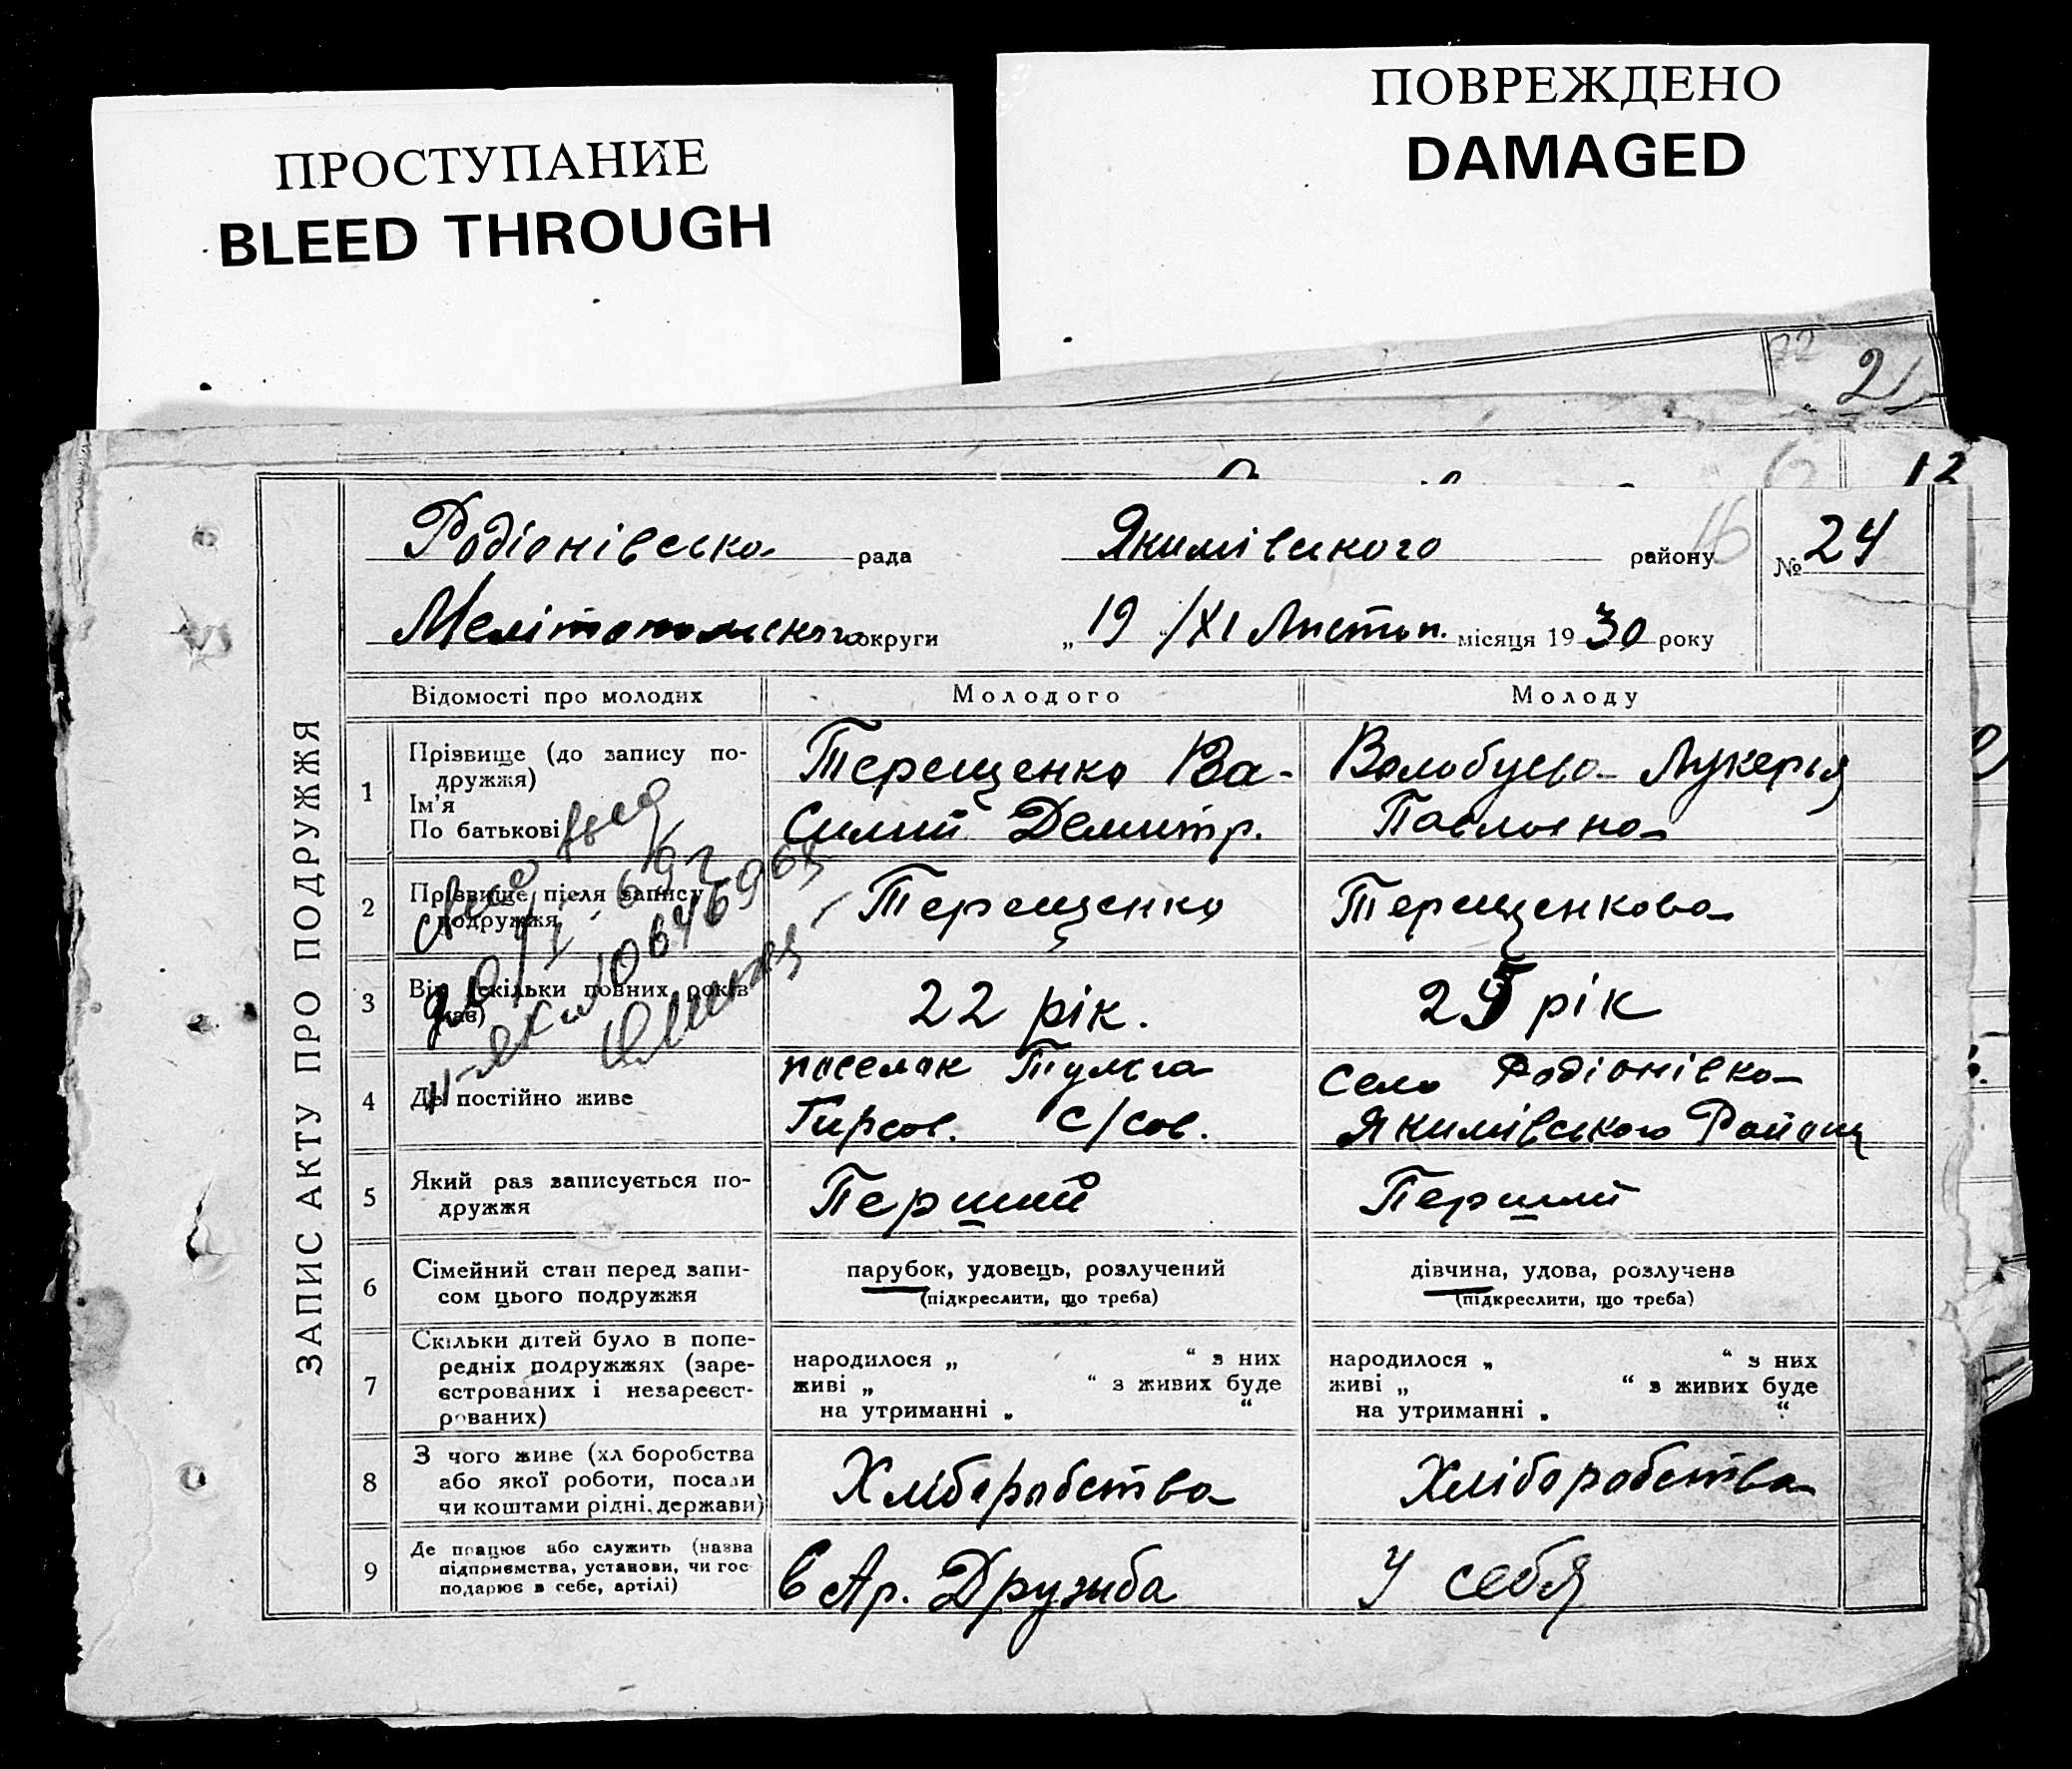 ПРОСТУПАНИЕ
BLEED THROUGH
ПОВРЕЖДЕНО
DAMAGED
2
12
ЗАПИС АКТУ ПРО ПОДРУЖЖЯ
Родіонівська рада Якимівського району 16 № 24
Мелітопольского округи „ 19 /XI Листоп. місяця 1930 року
Відомості про молодих Молодого Молоду
1 Прізвище (до запису по-
дружжя)
Ім'я
По батькові
Терещенко Ва-
силий Демитр.
Волобуєва Лукерія
Павловна
2 Прізвище після запису
подружжя
Терещенко
Терещенкова
3 Вік (скільки повних років
має)
22 рік.
25 рік
4 Де постійно живе
поселок Тулга
Гирсов. С/сов.
село Родіонівка
Якимівського Району
5 Який раз записується по-
дружжя
Перший
Перший
6 Сімейний стан перед запи-
сом цього подружжя
парубок, удовець, розлучений
(підкреслити, що треба)
дівчина, удова, розлучена
(підкреслити, що треба)
7 Скільки дітей було в попе-
редніх подружжях (заре-
єстрованих і незареєст-
рованих)
народилося „ “ з них
живі „ “ з живих буде
на утриманні „ “
народилося „ “ з них
живі „ “ з живих буде
на утриманні „ “
8 З чого живе (хл боробства
або якої роботи, посади
чи коштами рідні, держави)
Хліборобства
Хліборобства
9 Де працює або служить (назва
підприємства, установи, чи гос-
подарює в себе, артілі)
в Ар. Дружба
У себя